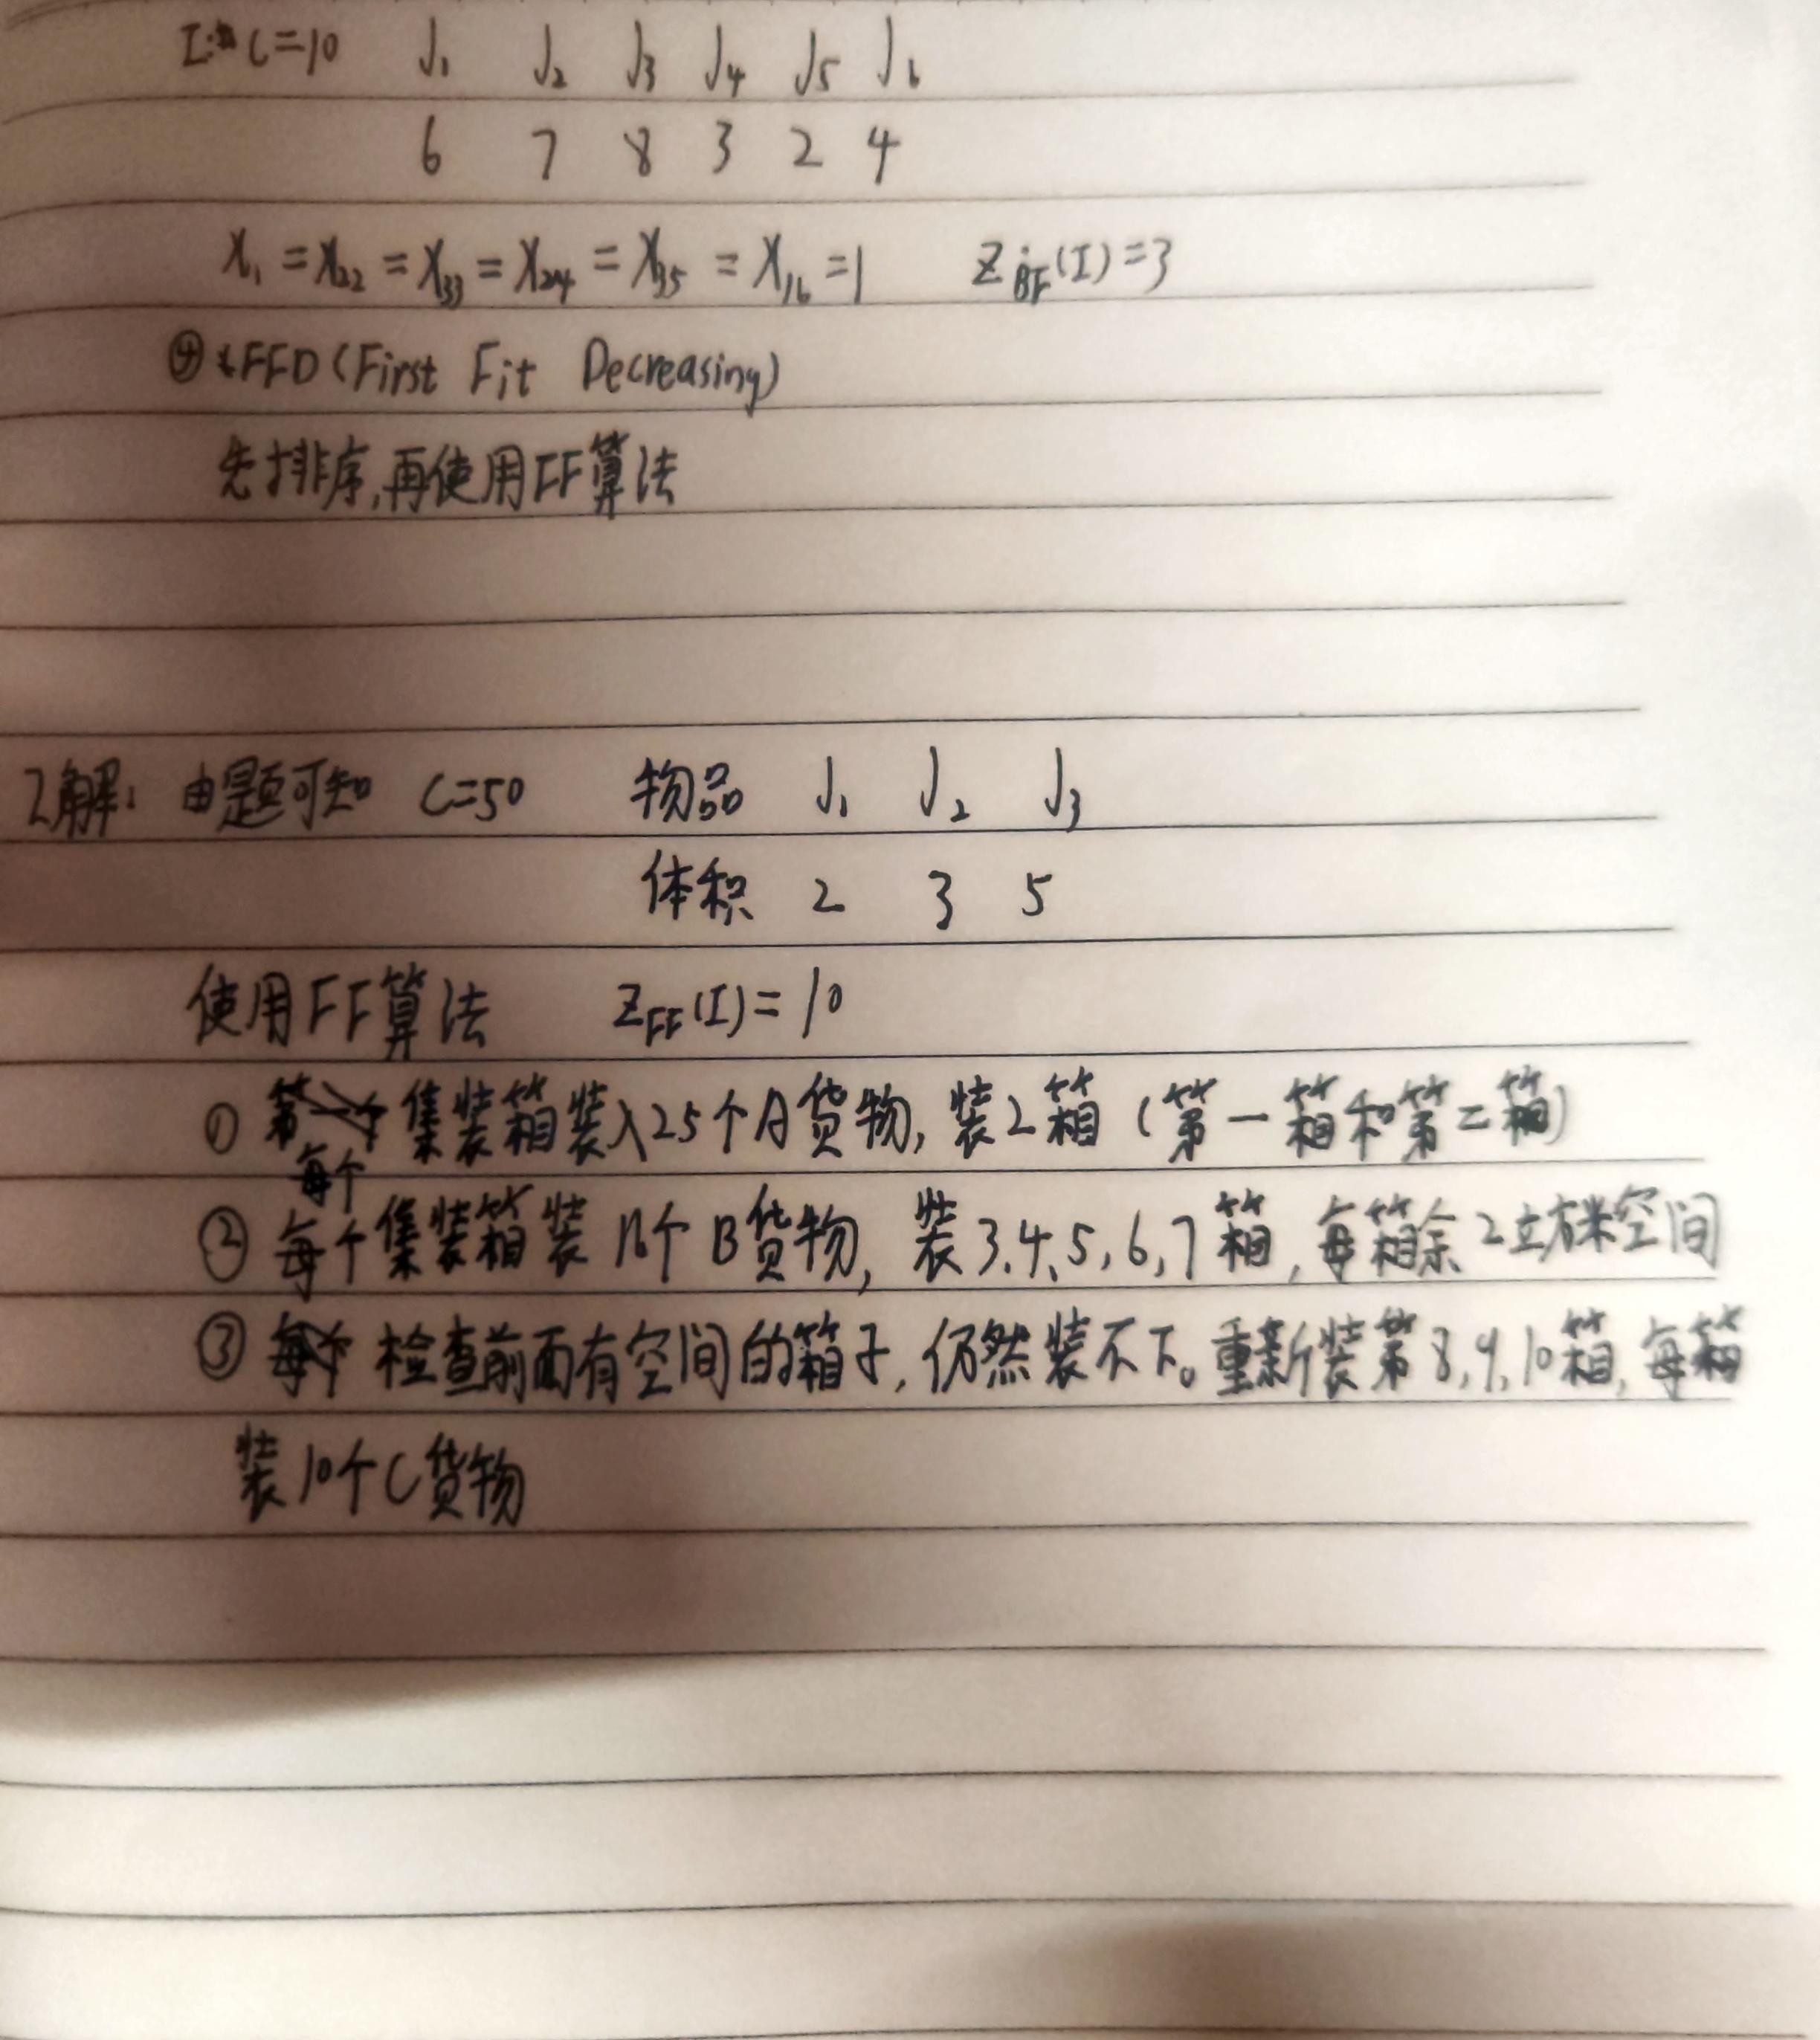 I: C=10 J₁ J₂ J₃ J₄ J₅ J₆
6 7 8 3 2 4
X₁ = X₂₂ = X₃₃ = X₂₄ = X₃₅ = X₁₆ = 1 Z_BF(I)=3
④*FFD(First Fit Decreasing)
先排序,再使用FF算法
2解: 由题可知 C=50 物品 J₁ J₂ J₃
体积 2 3 5
使用FF算法 Z_FF(I)=10
① 每个集装箱装入25个A货物, 装2箱 (第一箱和第二箱)
② 每个集装箱装16个B货物, 装3,4,5,6,7箱, 每箱余2立方米空间
③ 检查前面有空间的箱子, 仍然装不下。重新装第8,9,10箱, 每箱
装10个C货物